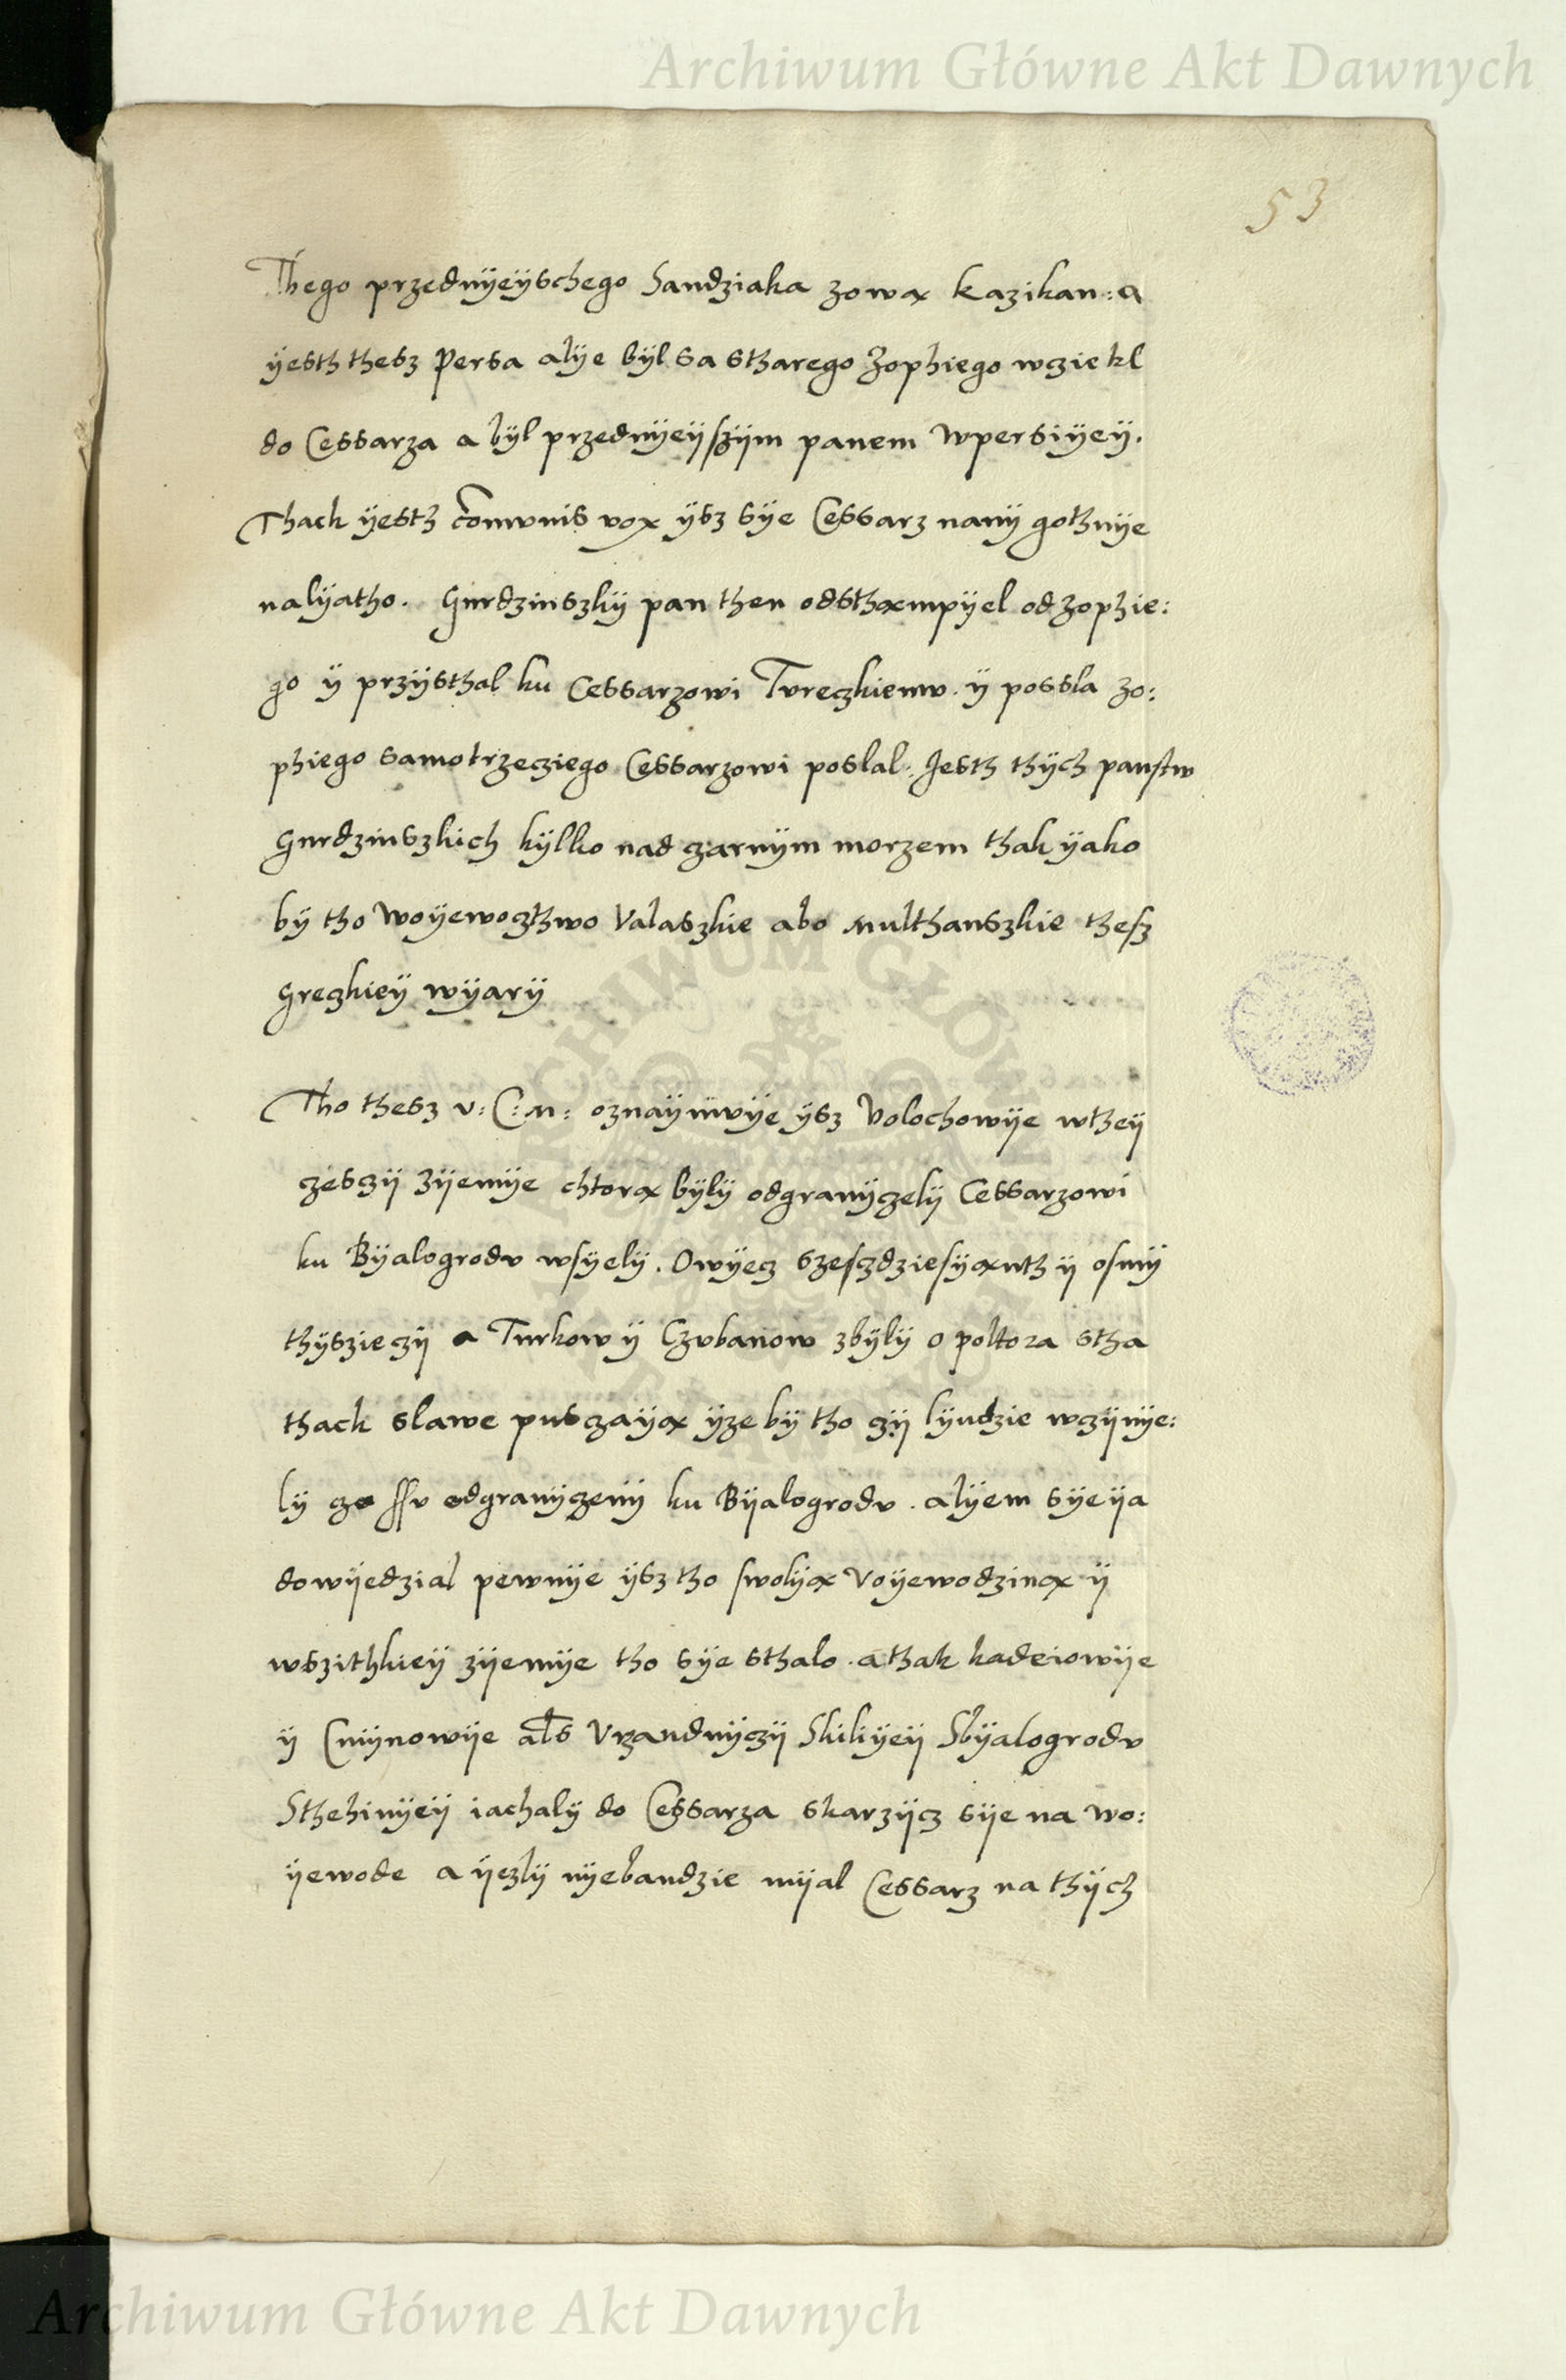 Archiwum Główne Akt Dawnych
53
Thego przednÿeÿschego Sandziaka zową kazikan: a
ÿesth thesz Persa alÿe bÿl sa stharego Zophiego wcziekl
do Cessarza a bÿl przednÿeÿszÿm panem wpersiÿeÿ.
Thack ÿesth comvnis vox ÿsz sÿe Cessarz nanÿ gothuÿe
nalÿatho. Gurdzinszkÿ pan then odsthąmpÿel od Zophie:
go ÿ przÿsthal ku Cessarzowi Tvreczkiemv. ÿ possla zo:
phiego samotrzecziego Cessarzowi poslal. Jesth thÿch panstw
Gurdzinszkich kÿlko nad czarnÿm morzem thak ÿako
bÿ tho woÿewoczthwo Valaszkie abo Multhanszkie thesz
Greczkieÿ wÿarÿ
Tho thesz v: C: M: oznaÿmvÿe ÿsz Volochowÿe wtheÿ
czesczÿ zÿemÿe chtorą bÿlÿ odgranÿczelÿ Cessarzowi
ku Bÿalogrodv wsÿelÿ. Owÿecz szesczdziesÿąnth ÿ osmÿ
thÿszieczÿ a Turkow ÿ Czvbanow zbÿlÿ o poltora stha
thack slawe pusczaÿą ÿze bÿ tho czÿ lÿudzie wczÿnÿe:
lÿ czo ssv odgranÿczenÿ ku Bÿalogrodv. alÿem sÿe ÿa
dowÿedzial pewnÿe ÿsz tho swolÿą Voÿewodziną ÿ
wszithkieÿ zÿemÿe tho sÿe sthalo. a thak kadeiowÿe
ÿ Cmÿnowÿe als Vrzandnÿczÿ Skiliÿeÿ Sbÿalogrodv
Sthehinÿeÿ iachalÿ do Cessarza skarzÿcz sÿe na wo:
ÿewode a ÿezlÿ nÿebandzie mÿal Cessarz na thÿch
Archiwum Główne Akt Dawnych